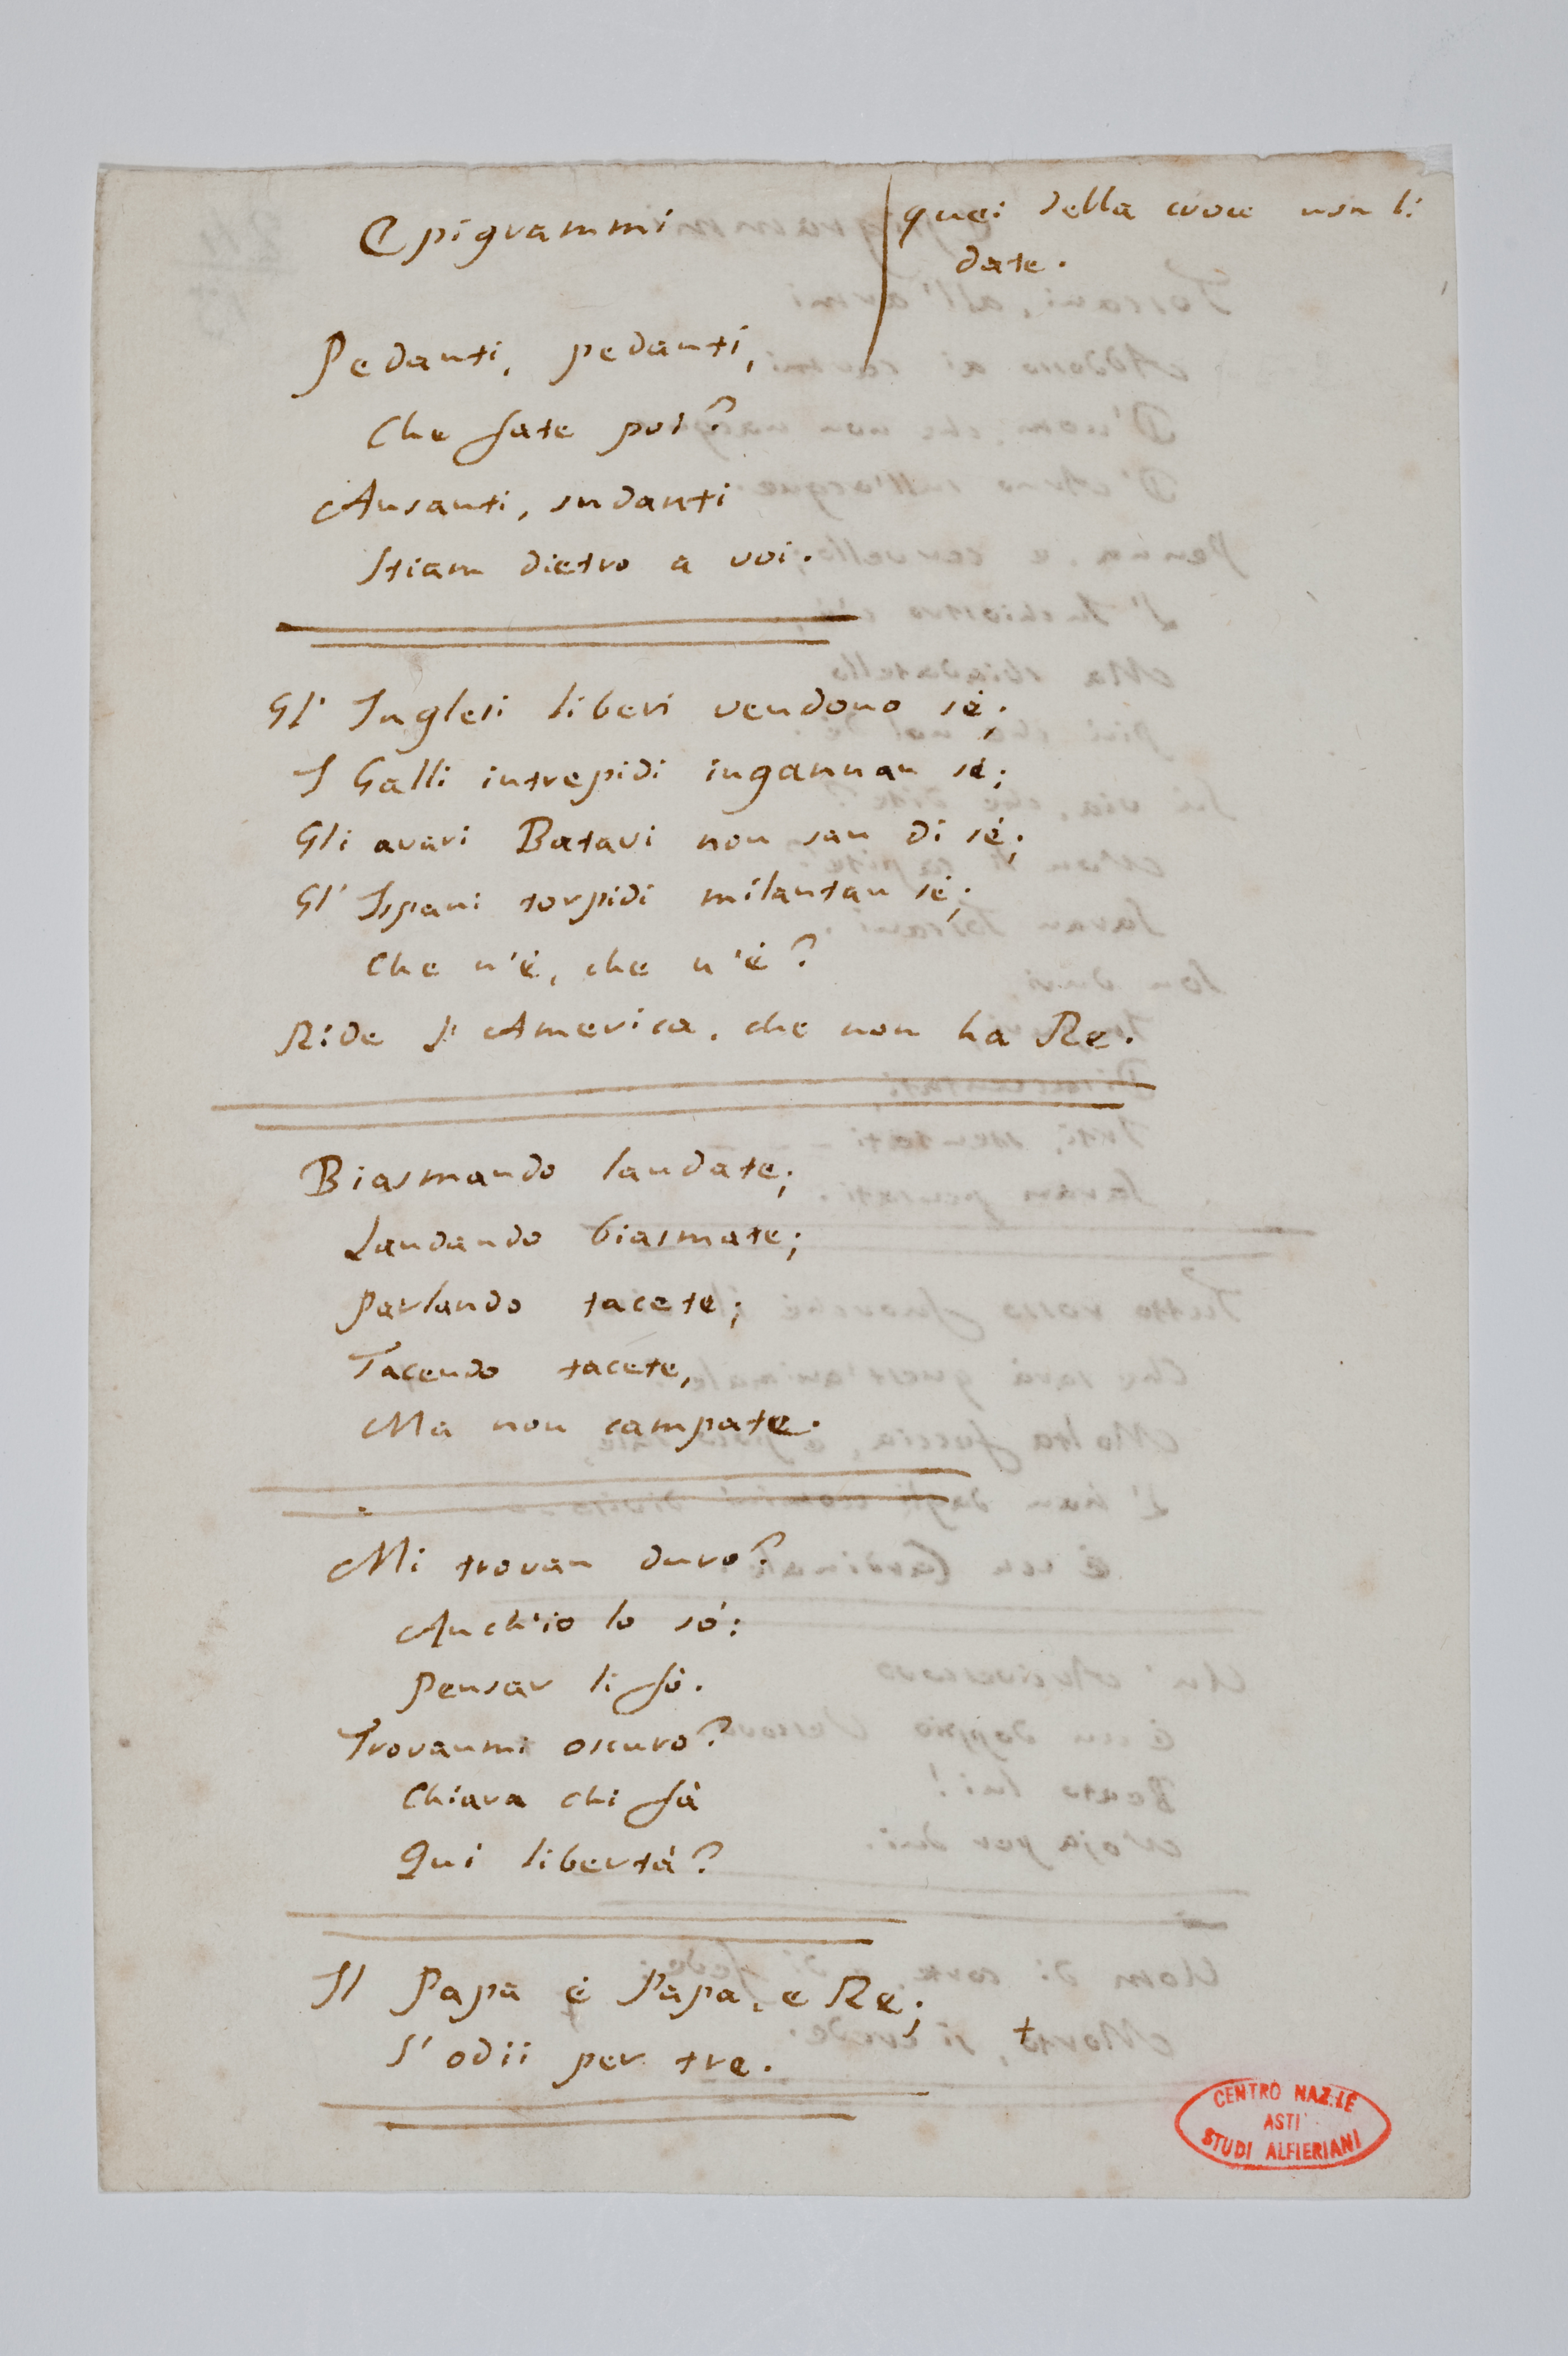 Epigrammi
quei della croce non li
date.
Pedanti, pedanti,
Che fate poi?
Ansanti, sudanti
Stiam dietro a voi.
Gl' Inglesi liberi vendono sè;
I Galli intrepidi ingannan sè;
Gli avari Batavi non san di sè;
Gl' Ispani torpidi milantan sè;
Che n'è, che n'è?
Ride l' America, che non ha Re.
Biasmando laudate;
Laudando biasmate;
Parlando tacete;
Tacendo tacete,
Ma non campate.
Mi trovan duro?
Anch'io lo sò:
Pensar li fò.
Trovanmi oscuro?
Chiara chi fà
Qui libertà?
Il Papa è Papa, e Re;
S' odii per tre.
CENTRO NAZ.LE
ASTI
STUDI ALFIERIANI